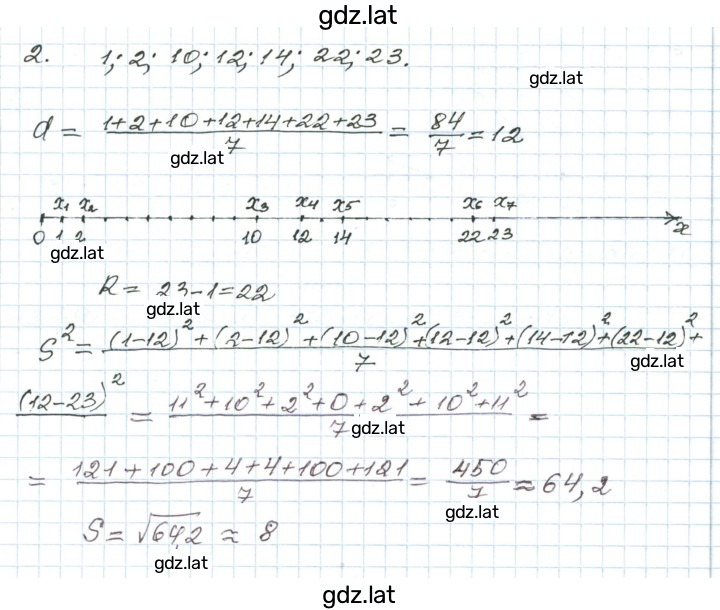 gdz.lat
2. 1; 2; 10; 12; 14; 22; 23.
gdz.lat
d = (1+2+10+12+14+22+23)/7 = 84/7 = 12
gdz.lat
x₁ x₂ x₃ x₄ x₅ x₆ x₇
0 1 2 10 12 14 22 23 x
gdz.lat
R = 23-1=22
gdz.lat
S² = ((1-12)² + (2-12)² + (10-12)² + (12-12)² + (14-12)² + (22-12)² +
7
gdz.lat
(12-23)² = (11² + 10² + 2² + 0 + 2² + 10² + 11²)/7 =
gdz.lat
= (121 + 100 + 4 + 4 + 100 + 121)/7 = 450/7 ≈ 64,2
gdz.lat
S = √64,2 ≈ 8
gdz.lat
gdz.lat